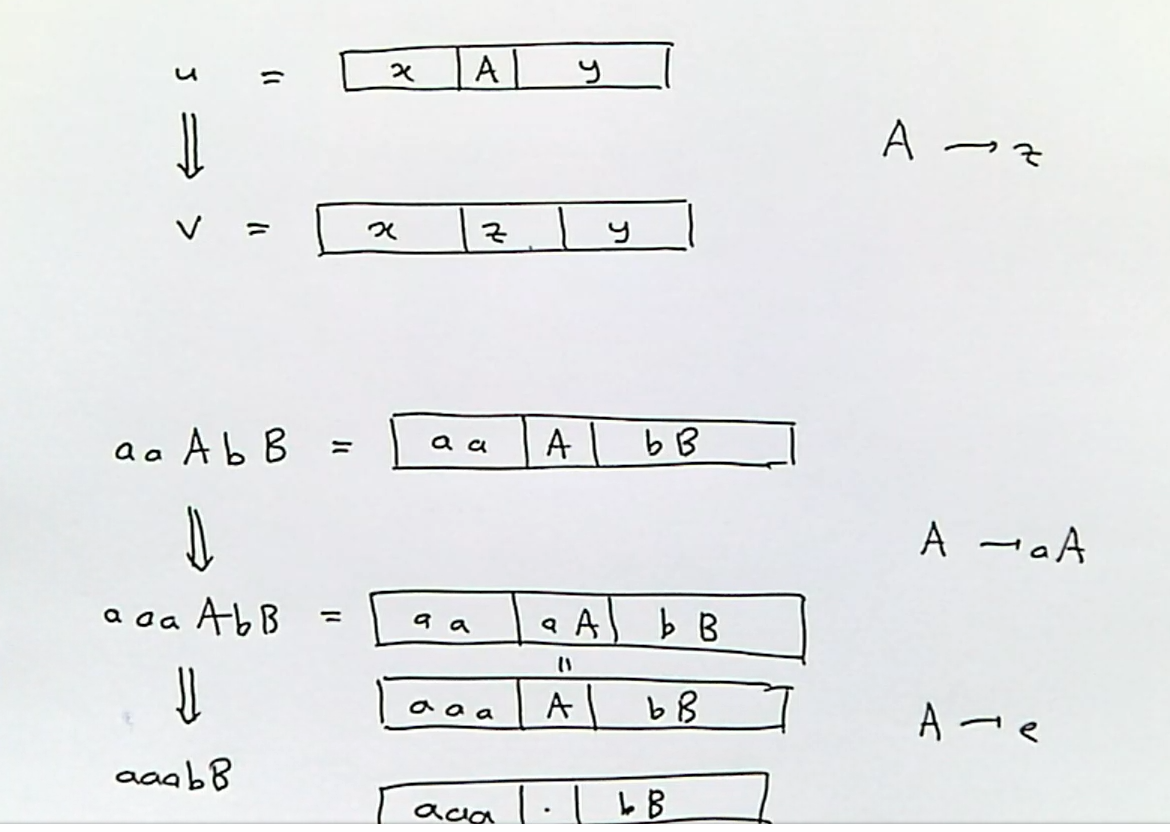 u = x A y
⇓ A → z
v = x z y
aaAbB = aa A bB
⇓ A → aA
aaaAbB = aa aA bB
॥
⇓ aaa A bB A → e
aaabB
aaa . bB